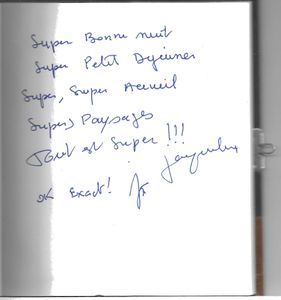 Super Bonne nuit
Super Petit Dejeuner
Super, Super Acceuil
Super) Paysages
Tout est Super !!!
Jacqueline
ok Exact!